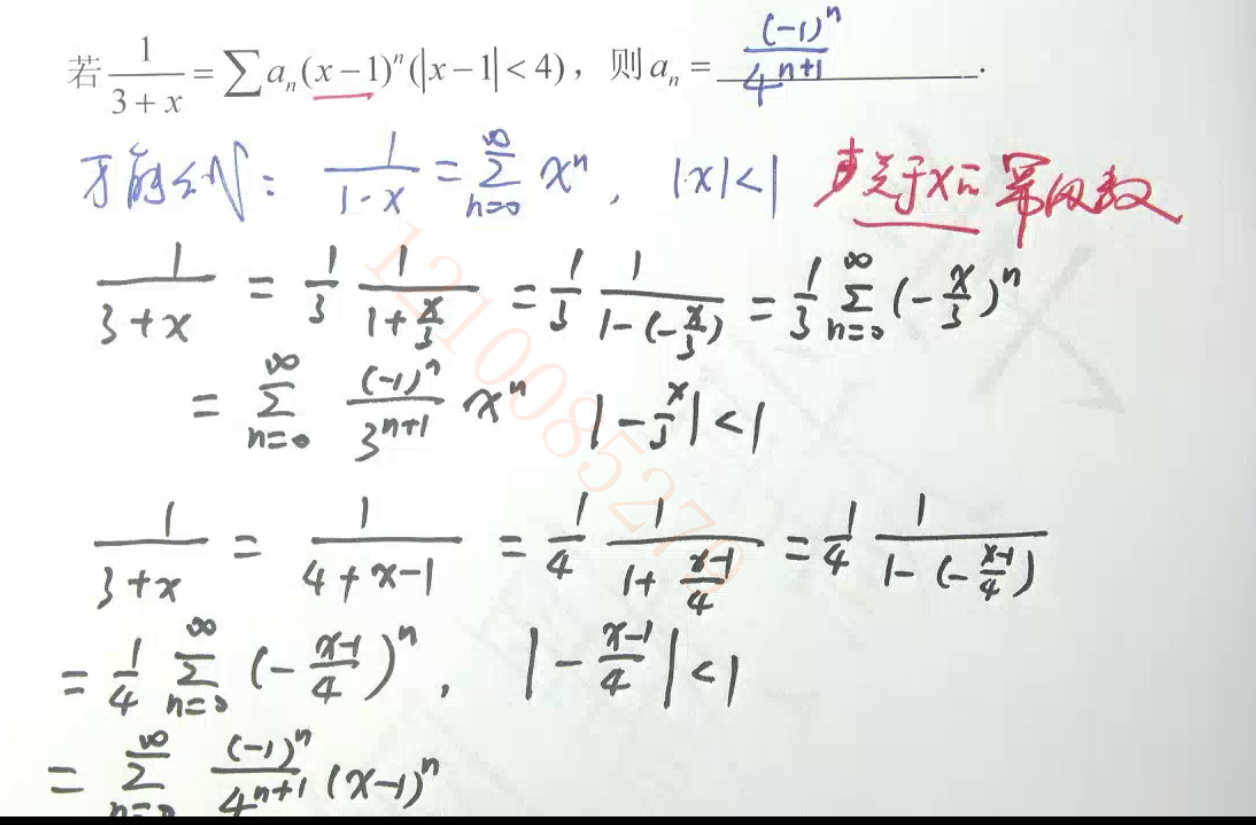 若 1/(3+x) = ∑ aₙ(x−1)ⁿ(|x−1|<4)，则 aₙ = (-1)ⁿ/4ⁿ⁺¹ .
: 1/(1-x) = ∑_{n=0}^{∞} xⁿ , |x|<1 关于x 幂级数
1/(3+x) = 1/3 · 1/(1+x/3) = 1/3 · 1/(1-(-x/3)) = 1/3 ∑_{n=0}^{∞} (-x/3)ⁿ
= ∑_{n=0}^{∞} (-1)ⁿ/3ⁿ⁺¹ xⁿ |-x/3|<1
1210085279
1/(3+x) = 1/(4+x-1) = 1/4 · 1/(1+(x-1)/4) = 1/4 · 1/(1-(-(x-1)/4))
= 1/4 ∑_{n=0}^{∞} (-(x-1)/4)ⁿ , |-(x-1)/4|<1
= ∑_{n=0}^{∞} (-1)ⁿ/4ⁿ⁺¹ (x-1)ⁿ